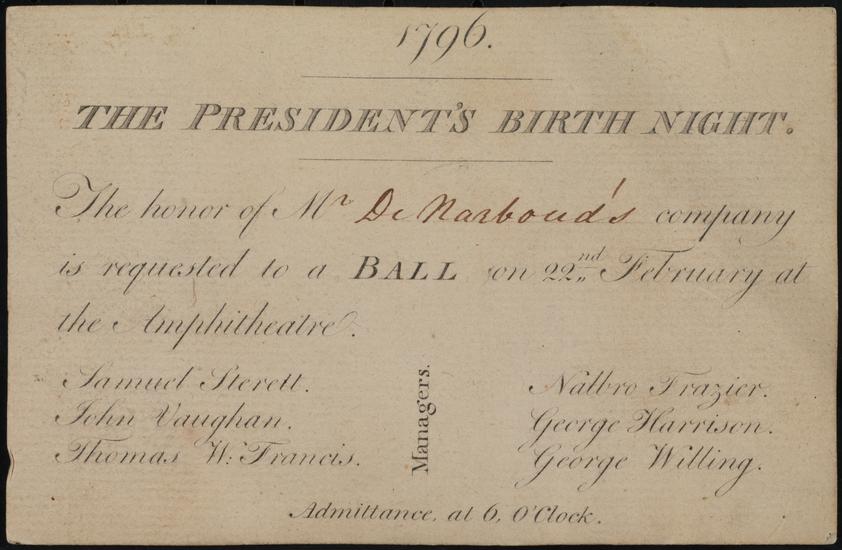 1796.
THE PRESIDENT'S BIRTH NIGHT.
The honor of Mr De Narboud's company
is requested to a BALL on 22nd February at
the Amphitheatre.
Samuel Sterett.
John Vaughan.
Thomas W: Francis.
Managers.
Nalbro Frazier.
George Harrison.
George Willing.
Admittance, at 6, O'Clock.